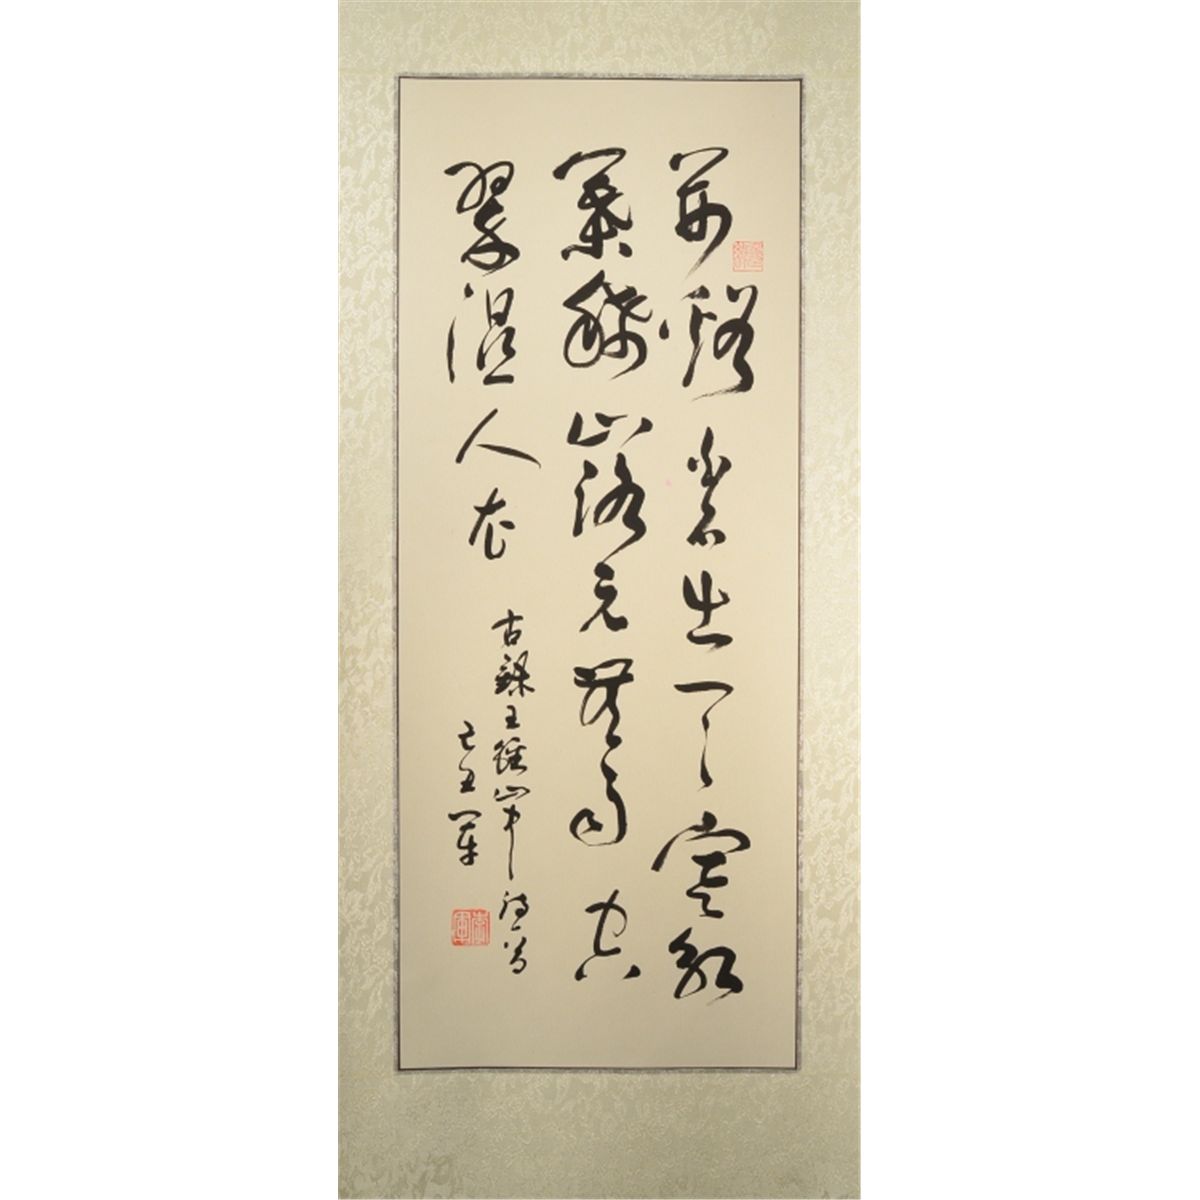 荊溪白石出天寒紅
葉稀山路元無雨空
翠濕人衣
古錄王維山中詩一首
己丑 軍